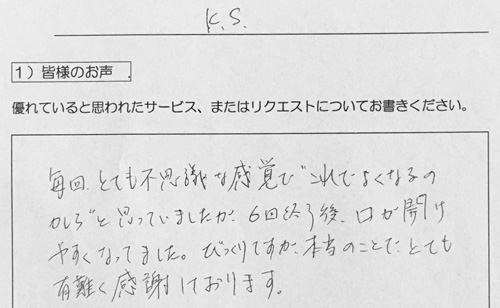 K.S.
1）皆様のお声
優れていると思われたサービス、またはリクエストについてお書きください。
毎回、とても不思議な感覚で"これでよくなるの
かしら"と思っていましたが、6回終了後、口が開け
やすくなってました。びっくりですが、本当のことで、とても
有難く感謝しております。